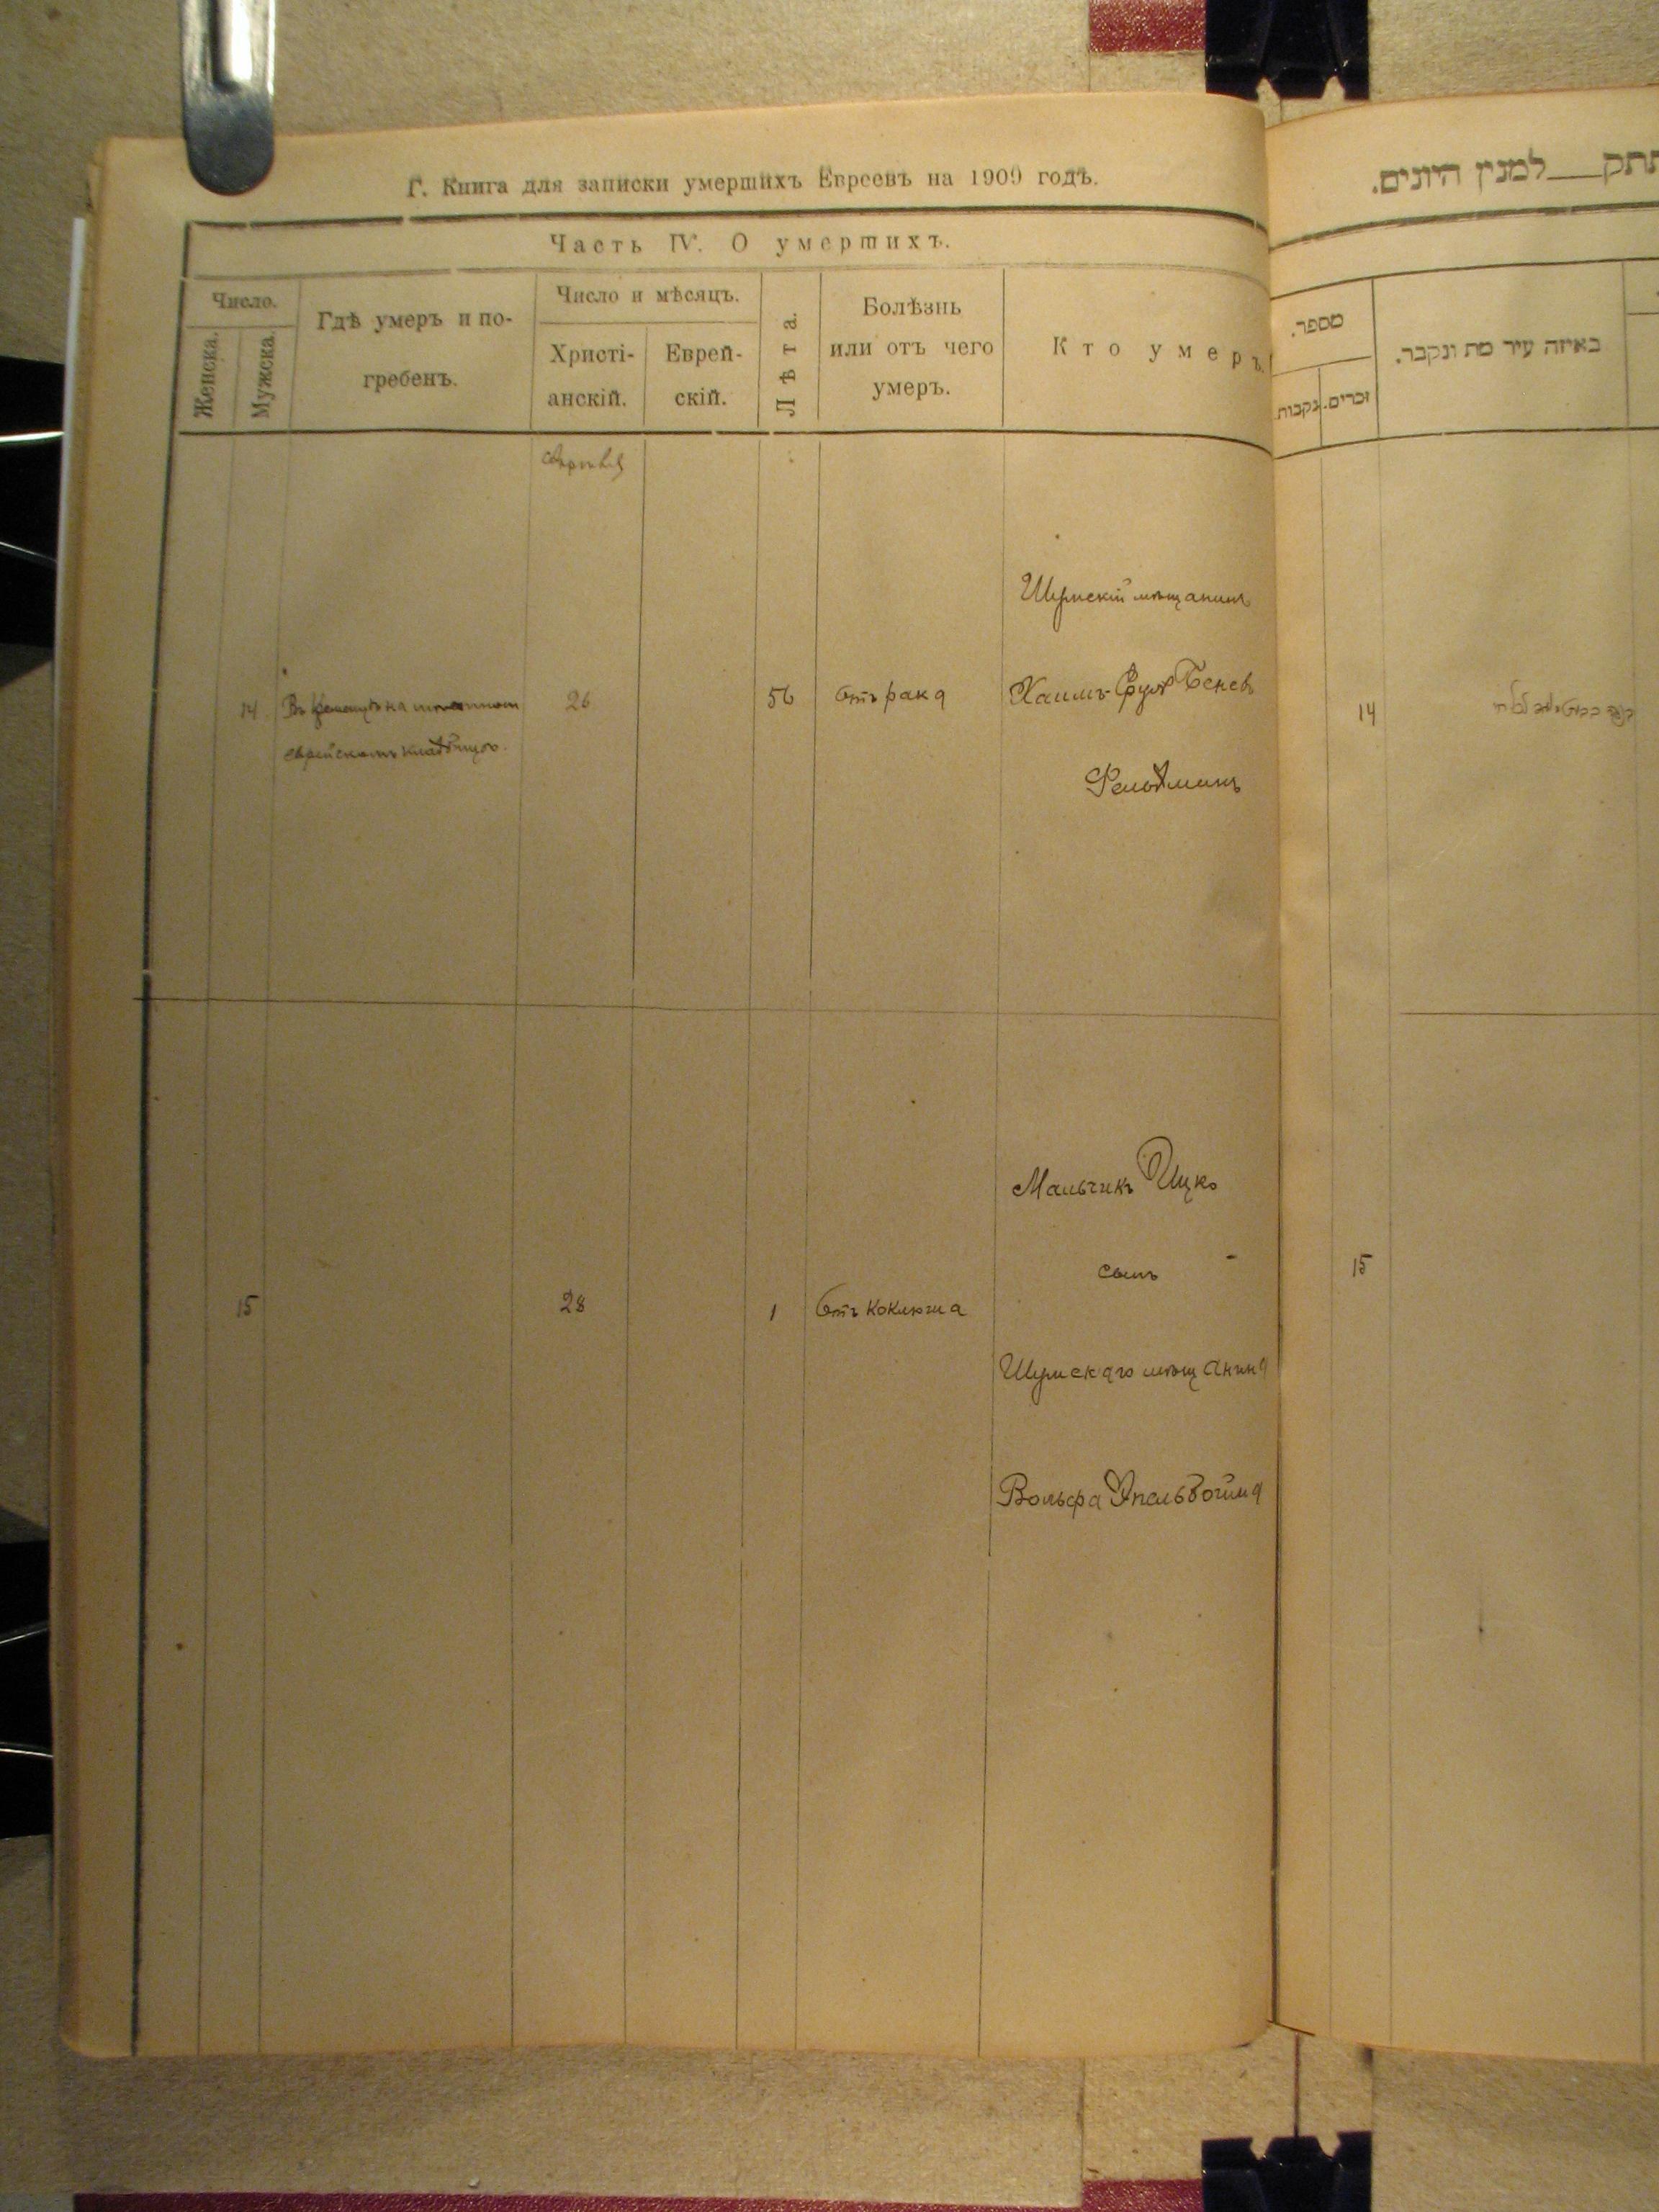 Г. Книга для записки умершихъ Евреевъ на 1909 годъ.
Часть IV. О умершихъ.
Число.
Женска.
Мужска.
Гдѣ умеръ и по-
гребенъ.
Число и мѣсяцъ.
Христі-
анскій.
Еврей-
скій.
Лѣта.
Болѣзнь
или отъ чего
умеръ.
Кто умеръ.
Шумскій мѣщанинъ
14
Въ на
еврейскомъ кладбищѣ.
26
56
Отъ рака
Хаимъ
Фельдманъ
Мальчикъ Ицко
сынъ
15
28
1
Отъ коклюша
Шумскаго мѣщанина
Вольфа Эпельбойма
למנין היונים.
מספר.
זכרים.
נקבות.
באיזה עיר מת ונקבר.
14
15